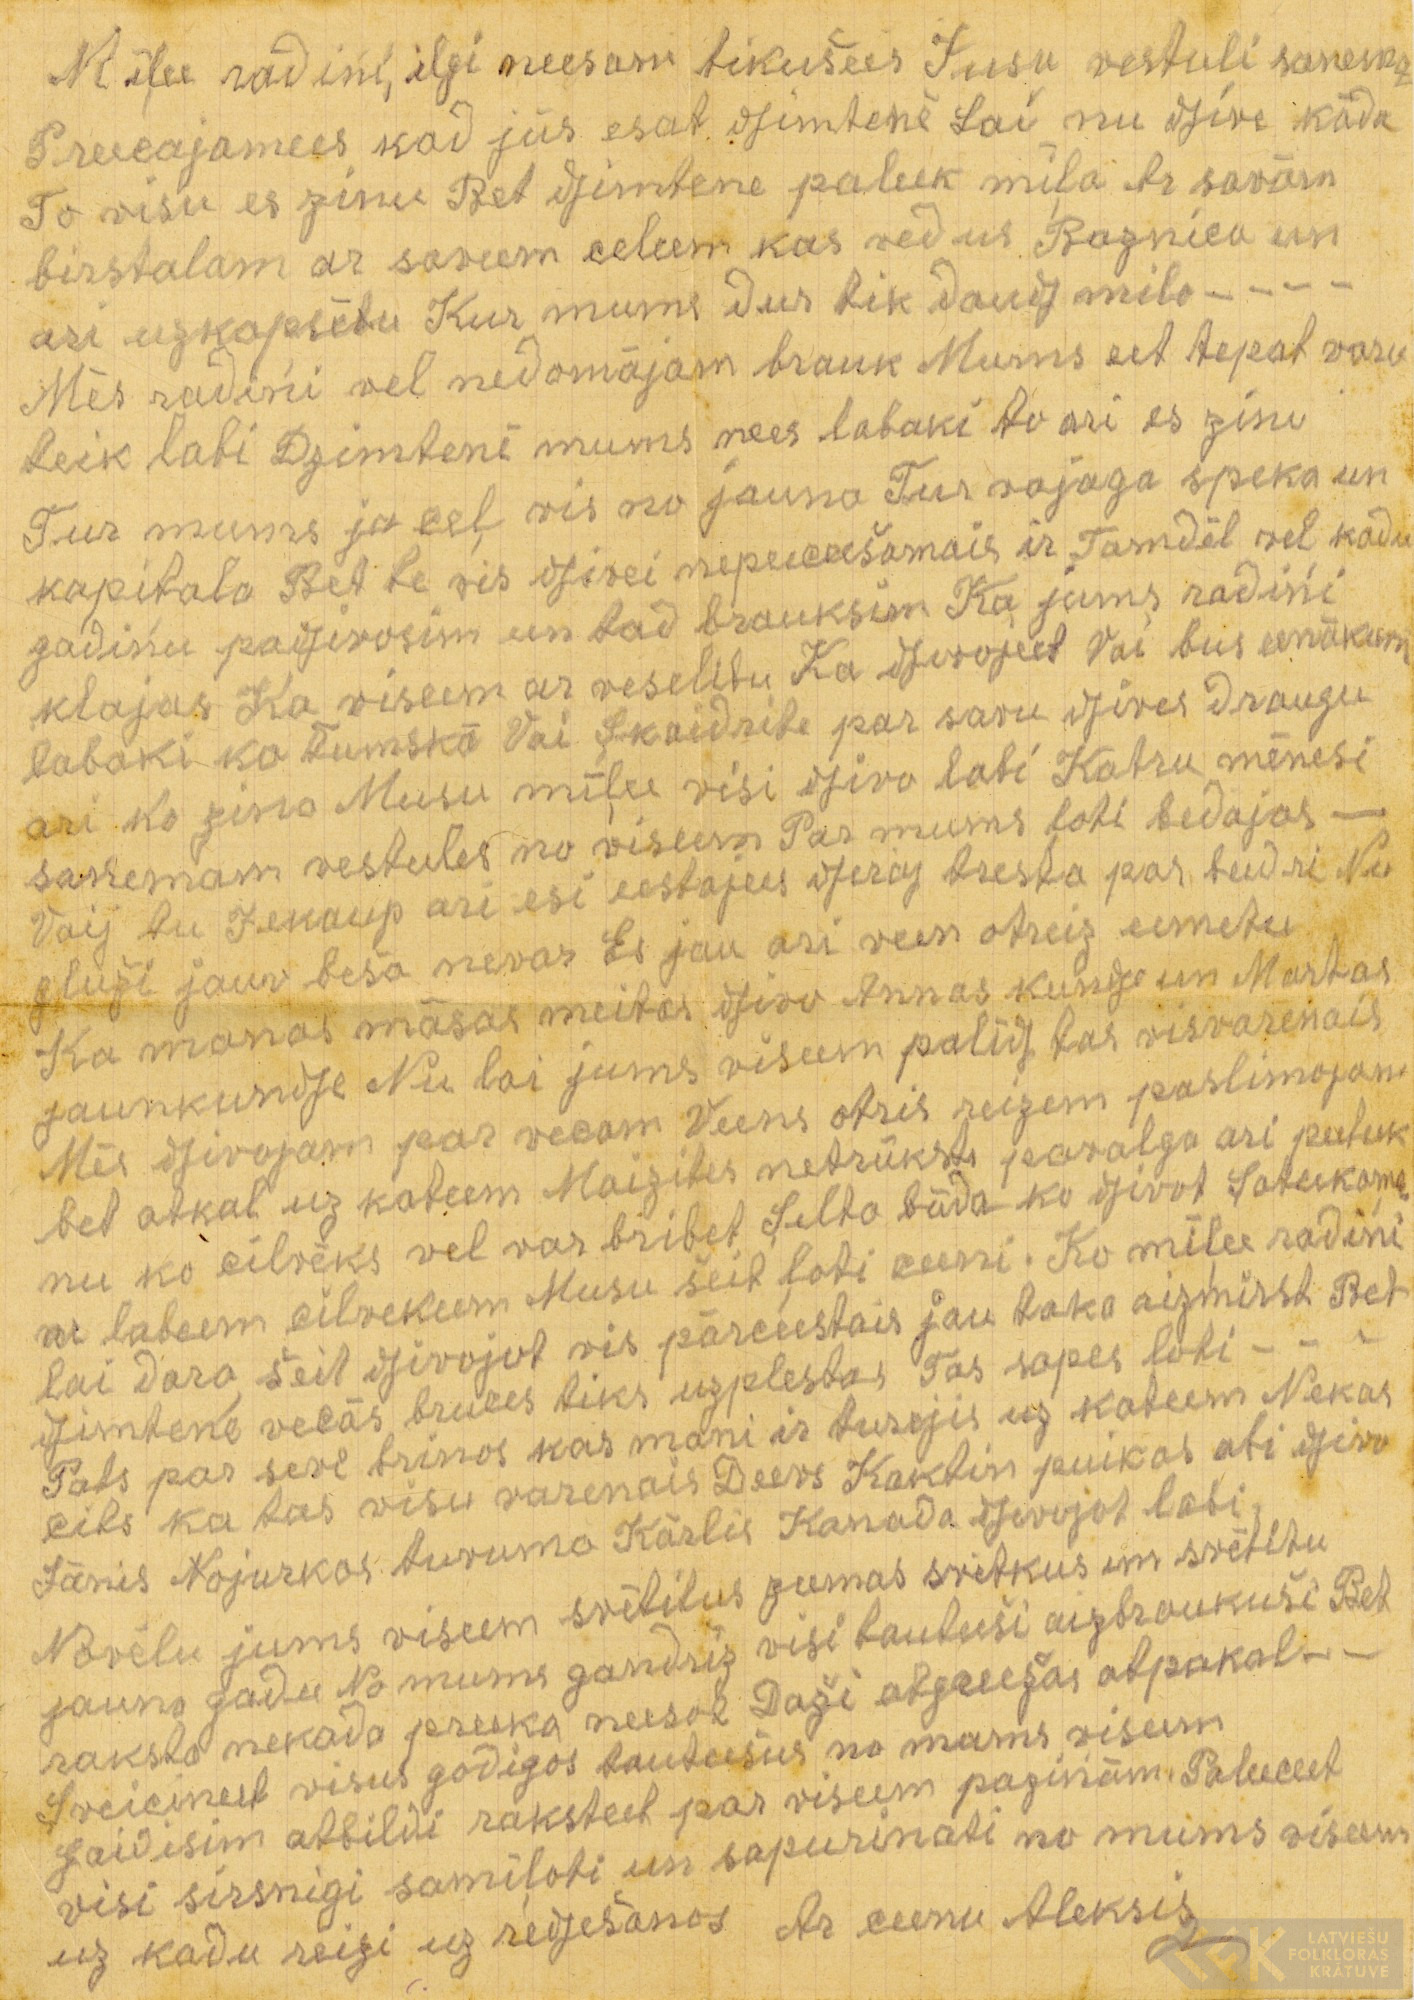 Mīļee radiņi, ilgi neesam tikušees Jusu vestuli saņemam
Preecajamees kad jūs esat dſimtenē Lai nu dſive kāda
To visu es zinu Bet dſimtene paleek mīļa Ar savām
birstalam ar saveem celeem kas ved us Baznica un
ari uzkapsētu Kur mums dus tik daudſ milo - - - -
Mēs radiņi vel nedomājam brauk Mums eet tepat varu
teik labi Dzimtenē mums nees labaki to ari es zinu
Tur mums ja cel vis no jauna Tur vajaga speka un
kapitala Bet te vis dſivei nepeeceešamais ir Tamdēl vel kadu
gadiņu padſivosim un tad brauksim Ka jums radiņi
klajas Ka viseem ar veselibu Ka dſivojeet Vai bus eenākum
labaki ka Tumskā Vai Skaidrite par savu dſives draugu
ari ko zina Musu mīļee visi dſivo labi Katru mēnesi
saņemam vestules no viseem Par mums loti bedajas —
Vaij tu Jekaup ari esi eestajees dſeraj tresta par beedri Nu
gluži jauv beša nevar Es jau ari veen otreiz eemetu
Ka manas māsas meitas dſivo Annas kundſe un Martas
jaunkundſe Nu lai jums viseem palidſ tas visvarenais
Mēs dſivojam par vecam Veens otris reizem paslimojam
bet atkal uz kateem Maizites netrūkst pavalga ari peeteek
nu ko cilvēks vel var bribet Silta būda ko dſivot Sateekama
ar labeem cilvekeem Musu šeit ļoti ceeni. Ko mīļee radiņi
lai dara šeit dſivojot vis pārceestais jau taka aizmirst Bet
dſimtenē vecās bruces tiks uzplestas Tas sapes loti - - -
Pats par sevi brinos kas mani ir turejis uz kateem Nekas
cits ka tas visu varenais Deevs Kaktiņ puikas abi dſivo
Jānis Nojurkas tuvuma Kārlis Kanada dſivojot labi
Novēlu jums viseem svētitus zeemas svētkus un svētitu
jauno gadu No mums gandriz visi tauteeši aizbraukuši Bet
raksta nekada preeka neesot Daži atgreežas atpakal - —
Sveicineet visus godigos tauteešus no mums viseem
gaidisim atbildi raksteet par viseem paziņām. Paleeceet
visi sirsnigi samīļoti un sapurinati no mums viseem
uz kadu reizi uz redſešanos Ar ceenu Aleksis
LATVIEŠU
FOLKLORAS
KRĀTUVE